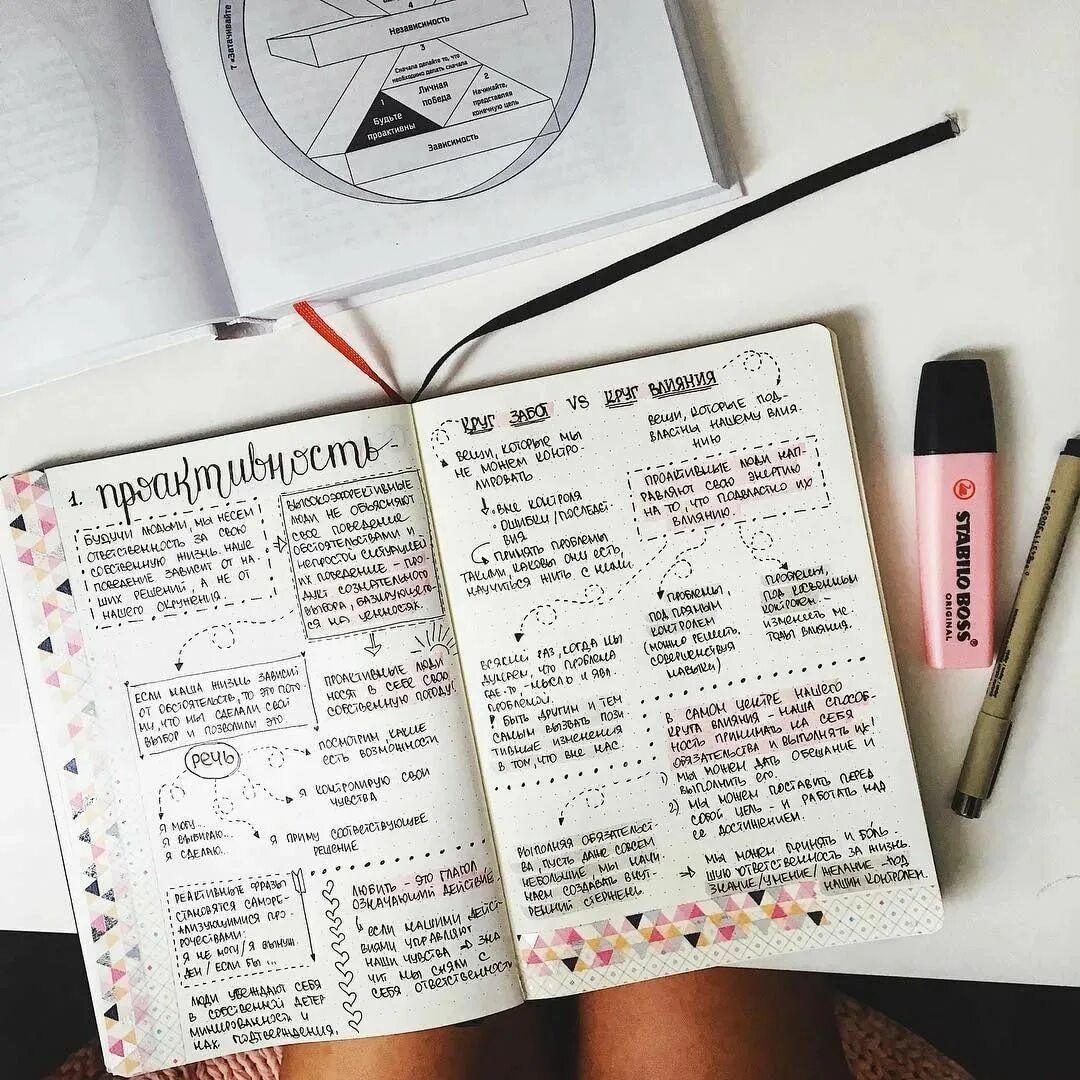 7 «Затачивайте
4
Независимость
3
Сначала делайте то, что
необходимо делать сначала
Личная
победа
2
Начинайте,
представляя
конечную цель
1
Будьте
проактивны
Зависимость
1. проактивность
БУДУЧИ ЛЮДЬМИ, МЫ НЕСЕМ
ОТВЕТСТВЕННОСТЬ ЗА СВОЮ
СОБСТВЕННУЮ ЖИЗНЬ. НАШЕ
ПОВЕДЕНИЕ ЗАВИСИТ ОТ НА
ШИХ РЕШЕНИЙ, А НЕ ОТ
НАШЕГО ОКРУЖЕНИЯ.
ВЫСОКОЭФФЕКТИВНЫЕ
ЛЮДИ НЕ ОБЪЯСНЯЮТ
СВОЕ ПОВЕДЕНИЕ
ОБСТОЯТЕЛЬСТВАМИ И
НЕПРОСТОЙ СИТУАЦИЕЙ
ИХ ПОВЕДЕНИЕ - ПРО-
ДУКТ СОЗНАТЕЛЬНОГО
ВЫБОРА, БАЗИРУЮЩЕГО-
СЯ НА ЦЕННОСТЯХ.
ЕСЛИ НАША ЖИЗНЬ ЗАВИСИТ
ОТ ОБСТОЯТЕЛЬСТВ, ТО ЭТО ПОТО
МУ, ЧТО МЫ СДЕЛАЛИ СВОЙ
ВЫБОР И ПОЗВОЛИЛИ ЭТО.
ПРОАКТИВНЫЕ ЛЮДИ
НОСЯТ В СЕБЕ СВОЮ
СОБСТВЕННУЮ ПОГОДУ!
РЕЧЬ
ПОСМОТРИМ, КАКИЕ
ЕСТЬ ВОЗМОЖНОСТИ
Я КОНТРОЛИРУЮ СВОИ
ЧУВСТВА
Я ПРИМУ СООТВЕТСТВУЮЩЕЕ
РЕШЕНИЕ
Я МОГУ...
Я ВЫБИРАЮ...
Я СДЕЛАЮ...
РЕАКТИВНЫЕ ФРАЗЫ
СТАНОВЯТСЯ САМОРЕ-
АЛИЗУЮЩИМИСЯ ПРО-
РОЧЕСТВАМИ:
Я НЕ МОГУ/Я ВЫНУЖ
ДЕН/ЕСЛИ БЫ ...
ЛЮДИ УБЕЖДАЮТ СЕБЯ
В СОБСТВЕННОЙ ДЕТЕР
МИНИРОВАННОСТИ И
ИХ ПОДТВЕРЖДЕНИЯ.
ЛЮБИТЬ - ЭТО ГЛАГОЛ
ОЗНАЧАЮЩИЙ ДЕЙСТВИЕ.
ЕСЛИ НАШИМИ ДЕЙСТ-
ВИЯМИ УПРАВЛЯЮТ
НАШИ ЧУВСТВА → ЗНА
ЧИТ МЫ СНЯЛИ С
СЕБЯ ОТВЕТСТВЕННОСТЬ
КРУГ ЗАБОТ VS КРУГ ВЛИЯНИЯ
ВЕЩИ, КОТОРЫЕ МЫ
НЕ МОЖЕМ КОНТРО-
ЛИРОВАТЬ
ВНЕ КОНТРОЛЯ
ОШИБКИ/ПОСЛЕДСТ-
ВИЯ
ПРИНЯТЬ ПРОБЛЕМЫ
ТАКИМИ, КАКОВЫ ОНИ ЕСТЬ,
НАУЧИТЬСЯ ЖИТЬ С НИМИ
ВЕЩИ, КОТОРЫЕ ПОД-
ВЛАСТНЫ НАШЕМУ ВЛИЯ-
НИЮ
ПРОАКТИВНЫЕ ЛЮДИ НАП-
РАВЛЯЮТ СВОЮ ЭНЕРГИЮ
НА ТО, ЧТО ПОДВЛАСТНО ИХ
ВЛИЯНИЮ.
ПРОБЛЕМЫ
ПОД ПРЯМЫМ
КОНТРОЛЕМ
(МОЖНО РЕШИТЬ,
СОВЕРШЕНСТВУЯ
НАВЫКИ)
ПРОБЛЕМЫ,
ПОД КОСВЕННЫМ
КОНТРОЛЕМ -
ИЗМЕНИТЬ МЕ-
ТОДЫ ВЛИЯНИЯ.
ВСЯКИЙ РАЗ, КОГДА МЫ
ДУМАЕМ, ЧТО ПРОБЛЕМА
ГДЕ-ТО, - МЫСЛЬ И ЯВЛ.
ПРОБЛЕМОЙ.
БЫТЬ ДРУГИМ И ТЕМ
САМЫМ ВЫЗВАТЬ ПОЗИ
ТИВНЫЕ ИЗМЕНЕНИЯ
В ТОМ, ЧТО ВНЕ НАС.
В САМОМ ЦЕНТРЕ НАШЕГО
КРУГА ВЛИЯНИЯ - НАША СПОСОБ-
НОСТЬ ПРИНИМАТЬ НА СЕБЯ
ОБЯЗАТЕЛЬСТВА И ВЫПОЛНЯТЬ ИХ!
1) МЫ МОЖЕМ ДАТЬ ОБЕЩАНИЕ И
ВЫПОЛНИТЬ ЕГО.
2) МЫ МОЖЕМ ПОСТАВИТЬ ПЕРЕД
СОБОЙ ЦЕЛЬ - И РАБОТАТЬ НАД
ЕЕ ДОСТИЖЕНИЕМ.
ВЫПОЛНЯЯ ОБЯЗАТЕЛЬСТ-
ВА, ПУСТЬ ДАЖЕ СОВСЕМ
НЕБОЛЬШИЕ, МЫ НАЧИ
НАЕМ СОЗДАВАТЬ ВНУТ-
РЕННИЙ СТЕРЖЕНЬ.
→ МЫ МОЖЕМ ПРИНЯТЬ И БОЛЬ-
ШУЮ ОТВЕТСТВЕННОСТЬ ЗА ЖИЗНЬ.
ЗНАНИЕ/УМЕНИЕ/ЖЕЛАНИЕ - ПОД
НАШИМ КОНТРОЛЕМ.
STABILO BOSS
ORIGINAL